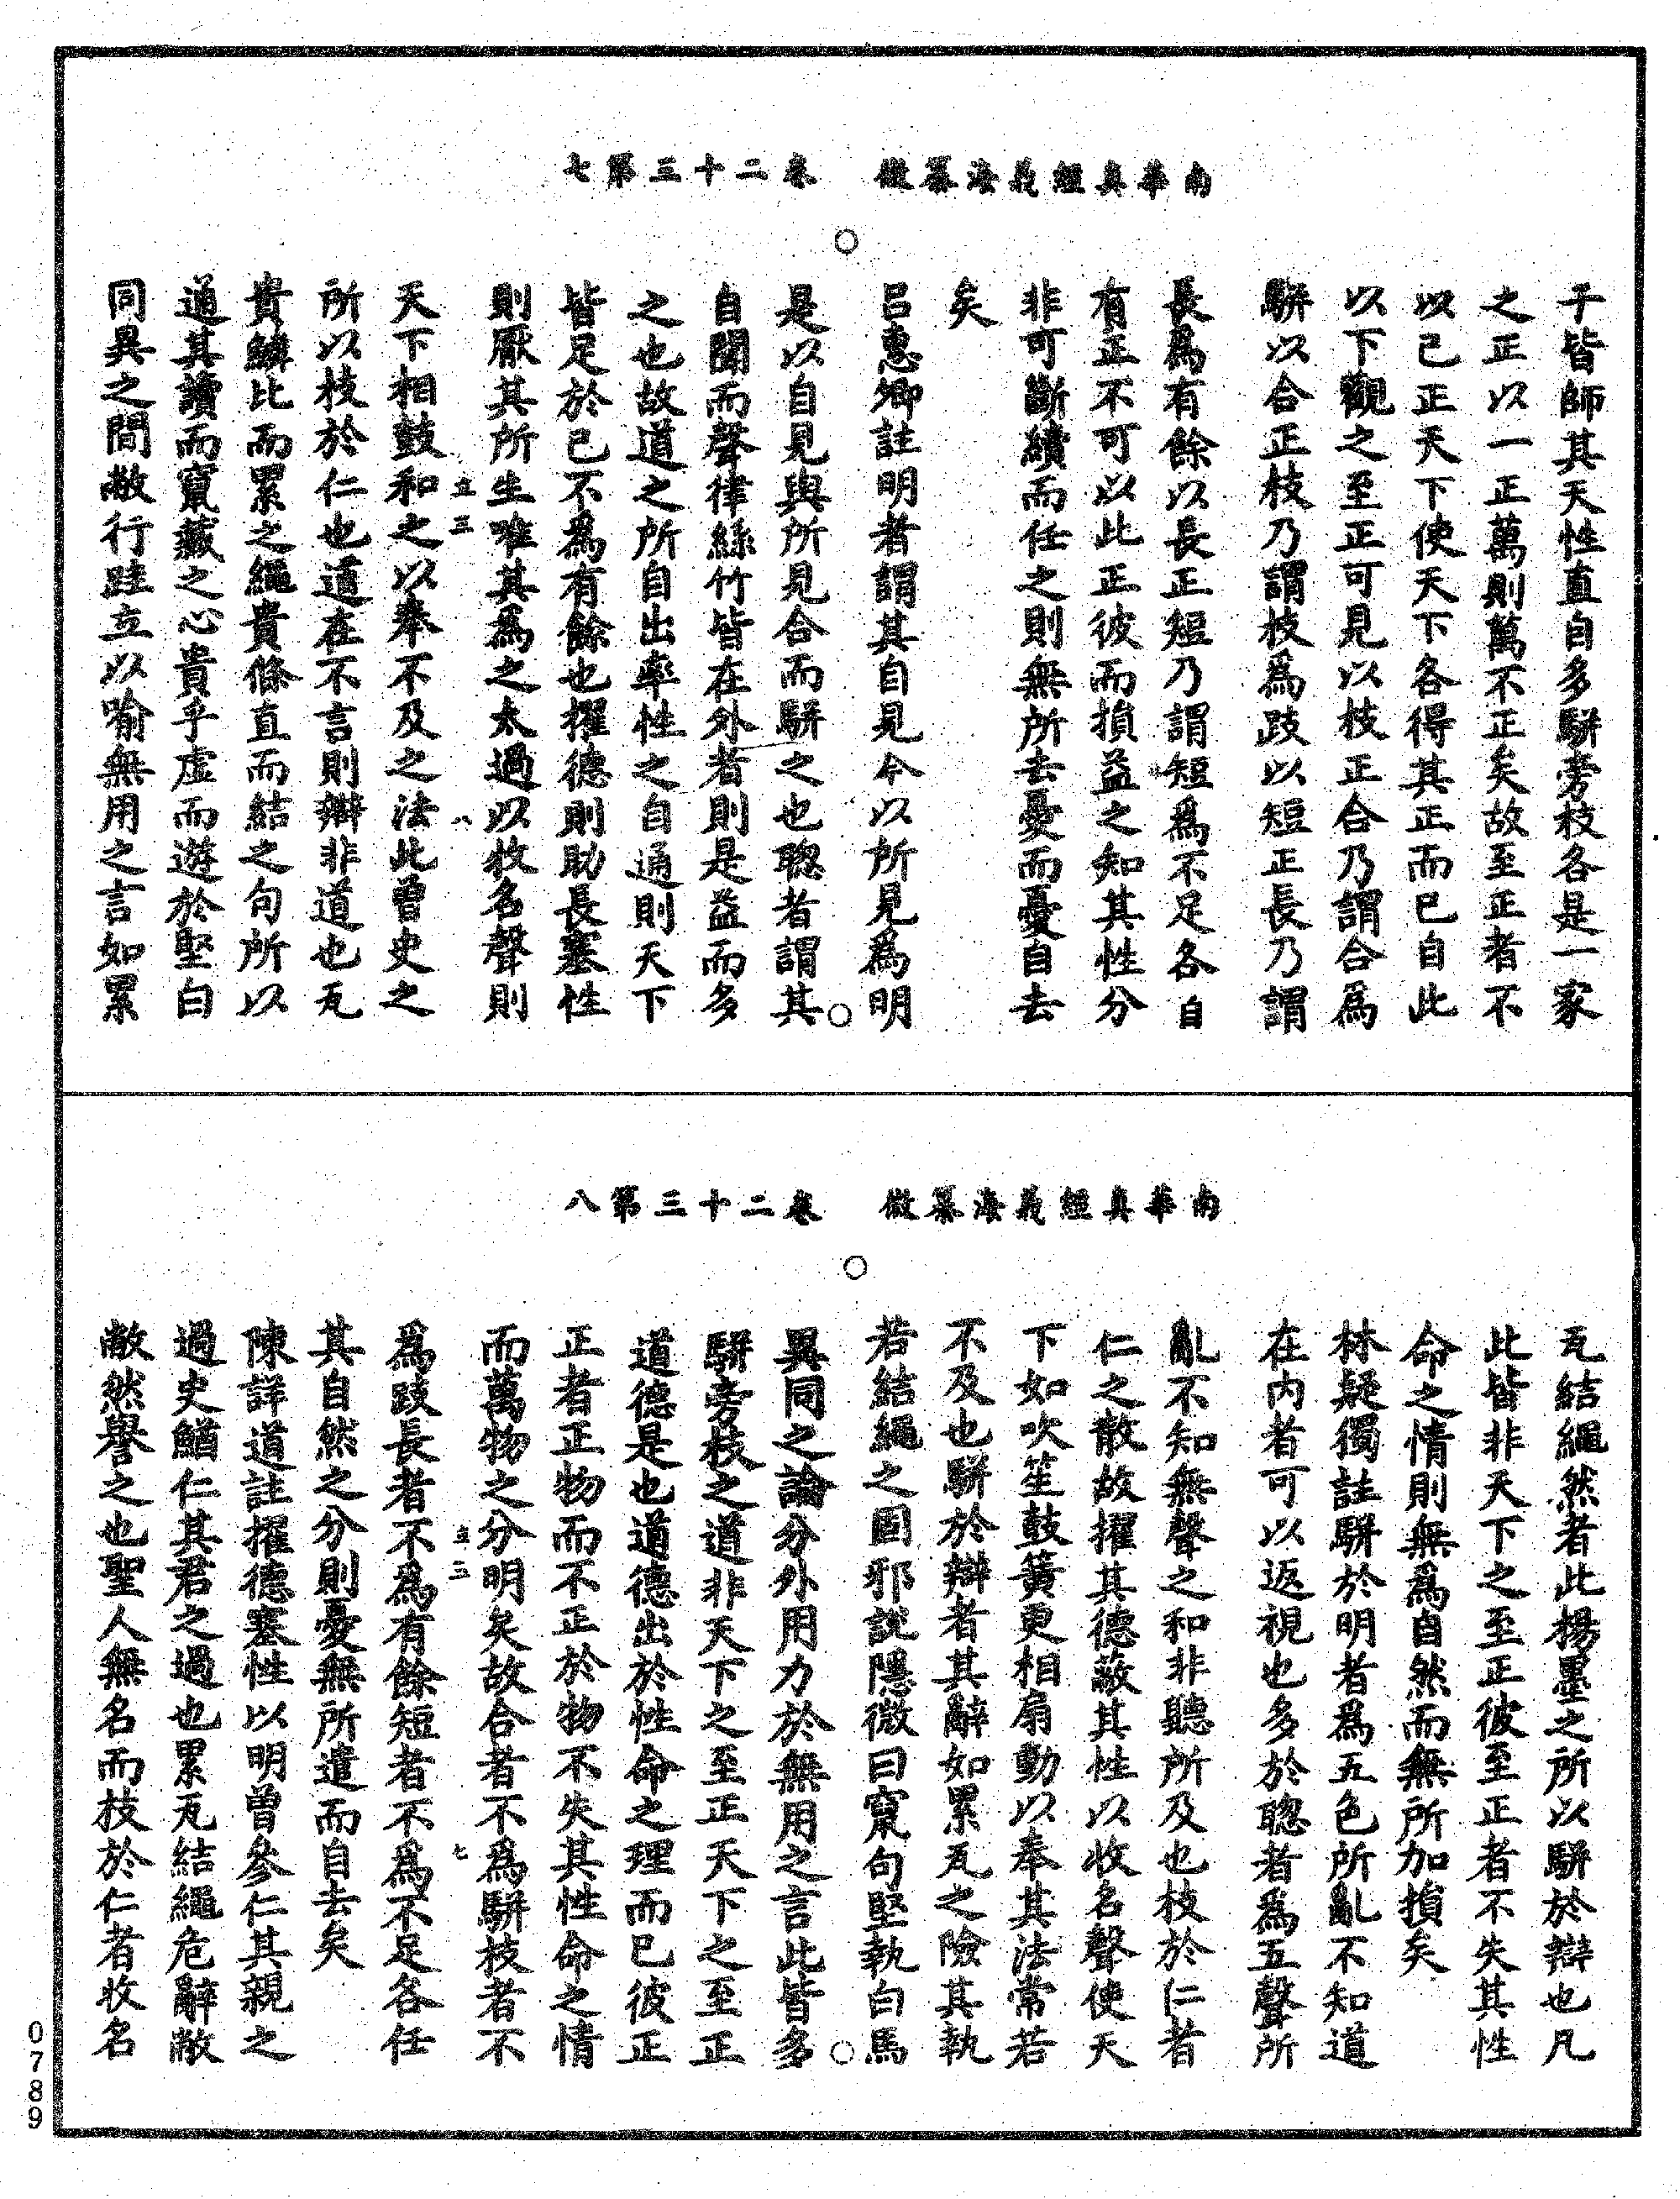 南華真經義海纂微　卷二十三第七
干皆師其天性直自多駢旁枝各是一家
之正以一正萬則萬不正矣故至正者不
以己正天下使天下各得其正而已自此
以下觀之至正可見以枝正合乃謂合為
駢以合正枝乃謂枝為跂以短正長乃謂
長為有餘以長正短乃謂短為不足各自
有正不可以此正彼而損益之知其性分
非可斷續而任之則無所去憂而憂自去
矣
呂惠卿註明者謂其自見今以所見為明
是以自見與所見合而駢之也聰者謂其
自聞而聲律絲竹皆在外者則是益而多
之也故道之所自出率性之自通則天下
皆足於已不為有餘也擢德則助長塞性
則厭其所生唯其為之太過以收名聲則
天下相鼓和之以奉不及之法此曾史之
所以枝於仁也道在不言則辯非道也瓦
貴鱗比而累之繩貴條直而結之句所以
通其讀而竄藏之心貴乎虛而遊於堅白
同異之間敝行跬立以喻無用之言如累
南華真經義海纂微　卷二十三第八
瓦結繩然者此楊墨之所以駢於辯也凡
此皆非天下之至正彼至正者不失其性
命之情則無為自然而無所加損矣
林疑獨註駢於明者為五色所亂不知道
在內者可以返視也多於聰者為五聲所
亂不知無聲之和非聽所及也枝於仁者
仁之散故擢其德蔽其性以收名聲使天
下如吹笙鼓簧更相扇動以奉其法常若
不及也駢於辯者其辭如累瓦之險其執
若結繩之固邪說隱微曰竄句堅執白馬
異同之論分外用力於無用之言此皆多
駢旁枝之道非天下之至正天下之至正
道德是也道德出於性命之理而已彼正
正者正物而不正於物不失其性命之情
而萬物之分明矣故合者不為駢枝者不
為跂長者不為有餘短者不為不足各任
其自然之分則憂無所遣而自去矣
陳詳道註擢德塞性以明曾參仁其親之
過史鰌仁其君之過也累瓦結繩危辭敝
敝然譽之也聖人無名而枝於仁者收名
0789